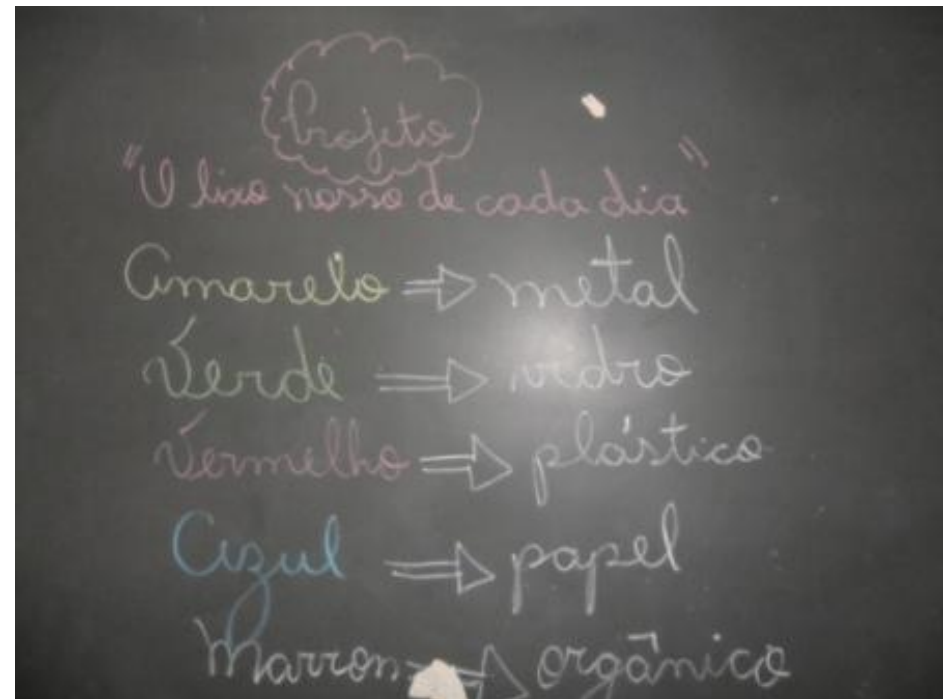 Projeto
"O lixo nosso de cada dia"
Amarelo ⇒ metal
Verde ⇒ vidro
Vermelho ⇒ plástico
Azul ⇒ papel
Marron ⇒ orgânico